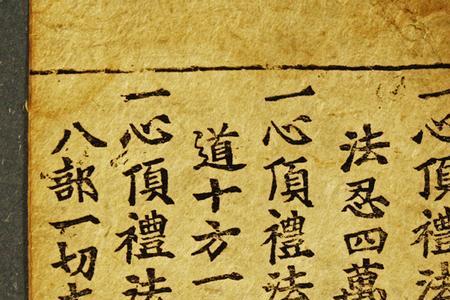 一心頂禮法
法忍四萬
一心頂禮法
道十方一
一心頂禮法
八部一切